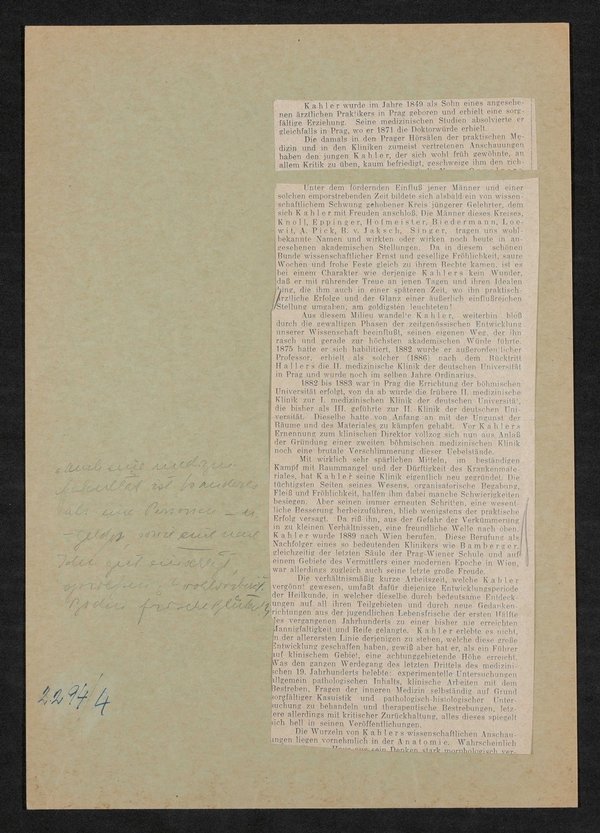 Kahler wurde im Jahre 1849 als Sohn eines angesehe-
nen ärztlichen Praktikers in Prag geboren und erhielt eine sorg-
fältige Erziehung. Seine medizinischen Studien absolvierte er
gleichfalls in Prag, wo er 1871 die Doktorwürde erhielt.
Die damals in den Prager Hörsälen der praktischen Me-
dizin und in den Kliniken zumeist vertretenen Anschauungen
haben den jungen Kahler, der sich wohl früh gewöhnte, an
allem Kritik zu üben, kaum befriedigt, geschweige ihm den rich-
Unter dem fördernden Einfluß jener Männer und einer
solchen emporstrebenden Zeit bildete sich alsbald ein von wissen-
schaftlichem Schwung gehobener Kreis jüngerer Gelehrter, dem
sich Kahler mit Freuden anschloß. Die Männer dieses Kreises,
Knoll, Eppinger, Hofmeister, Biedermann, Loe-
wit, A. Pick, R. v. Jaksch, Singer, tragen uns wohl-
bekannte Namen und wirkten oder wirken noch heute in an-
gesehenen akademischen Stellungen. Da in diesem schönen
Bunde wissenschaftlicher Ernst und gesellige Fröhlichkeit, saure
Wochen und frohe Feste gleich zu ihrem Rechte kamen, ist es
bei einem Charakter wie derjenige Kahlers kein Wunder,
daß er mit rührender Treue an jenen Tagen und ihren Idealen
hing, die ihm auch in einer späteren Zeit, wo ihn praktisch-
ärztliche Erfolge und der Glanz einer äußerlich einflußreichen
Stellung umgaben, am goldigsten leuchteten!
Aus diesem Milieu wandelte Kahler, weiterhin bloß
durch die gewaltigen Phasen der zeitgenössischen Entwicklung
unserer Wissenschaft beeinflußt, seinen eigenen Weg, der ihn
rasch und gerade zur höchsten akademischen Würde führte.
1875 hatte er sich habilitiert, 1882 wurde er außerordentlicher
Professor, erhielt als solcher (1886) nach dem Rücktritt
Hallers die II. medizinische Klinik der deutschen Universität
in Prag und wurde noch im selben Jahre Ordinarius.
1882 bis 1883 war in Prag die Errichtung der böhmischen
Universität erfolgt, von da ab wurde die frühere II. medizinische
Klinik zur I. medizinischen Klinik der deutschen Universität,
die bisher als III. geführte zur II. Klinik der deutschen Uni-
versität. Dieselbe hatte von Anfang an mit der Ungunst der
Räume und des Materiales zu kämpfen gehabt. Vor Kahlers
Ernennung zum klinischen Direktor vollzog sich nun aus Anlaß
der Gründung einer zweiten böhmischen medizinischen Klinik
noch eine brutale Verschlimmerung dieser Uebelstände.
Mit wirklich sehr spärlichen Mitteln, im beständigen
Kampf mit Raummangel und der Dürftigkeit des Krankenmate-
riales, hat Kahler seine Klinik eigentlich neu gegründet. Die
tüchtigsten Seiten seines Wesens, organisatorische Begabung,
Fleiß und Fröhlichkeit, halfen ihm dabei manche Schwierigkeiten
besiegen. Aber seinen immer erneuten Schritten, eine wesent-
liche Besserung herbeizuführen, blieb wenigstens der praktische
Erfolg versagt. Da riß ihn, aus der Gefahr der Verkümmerung
in zu kleinen Verhältnissen, eine freundliche Welle nach oben.
Kahler wurde 1889 nach Wien berufen. Diese Berufung als
Nachfolger eines so bedeutenden Klinikers wie Bamberger,
gleichzeitig der letzten Säule der Prag-Wiener Schule und auf
einem Gebiete des Vermittlers einer modernen Epoche in Wien,
war allerdings zugleich auch seine letzte große Freude.
Die verhältnismäßig kurze Arbeitszeit, welche Kahler
vergönnt gewesen, umfaßt dafür diejenige Entwicklungsperiode
der Heilkunde, in welcher dieselbe durch bedeutsame Entdeck-
ungen auf all ihren Teilgebieten und durch neue Gedanken-
richtungen aus der jugendlichen Lebensfrische der ersten Hälfte
des vergangenen Jahrhunderts zu einer bisher nie erreichten
Mannigfaltigkeit und Reife gelangte. Kahler erlebte es nicht,
in der allerersten Linie derjenigen zu stehen, welche diese große
Entwicklung geschaffen haben, gewiß aber hat er, als ein Führer
auf klinischem Gebiet, eine achtunggebietende Höhe erreicht.
Was den ganzen Werdegang des letzten Drittels des medizini-
schen 19. Jahrhunderts belebte: experimentelle Untersuchungen
allgemein pathologischen Inhalts, klinische Arbeiten mit dem
Bestreben, Fragen der inneren Medizin selbständig auf Grund
sorgfältiger Kasuistik und pathologisch-histologischer Unter-
suchung zu behandeln und therapeutische Bestrebungen, letz-
tere allerdings mit kritischer Zurückhaltung, alles dieses spiegelt
sich hell in seinen Veröffentlichungen.
Die Wurzeln von Kahlers wissenschaftlichen Anschau-
ungen liegen vornehmlich in der Anatomie. Wahrscheinlich
sein Danken stark morphologisch ver-
2294/4